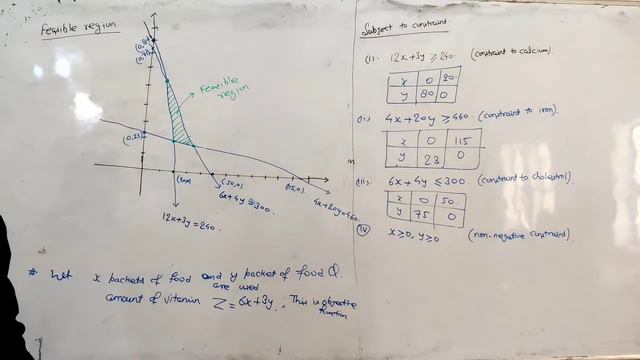 Feasible region
(0,80)
(0,75)
Feasible
region
(0,23)
(20,0)
(50,0)
(115,0)
6x+4y≤300.
4x+20y=460.
12x+3y=240.
# Let x packets of food and y packet of food Q.
are used
amount of vitamin Z=6x+3y; This is objective
function
Subject to constraint
(i). 12x+3y ≥ 240. (constraint to calcium).
x 0 20
y 80 0
(ii) 4x+20y ≥ 460. (constraint to iron).
x 0 115
y 23 0
(iii) 6x+4y ≤ 300. (constraint to cholestrol)
x 0 50
y 75 0
(iv) x≥0, y≥0 (non-negative constraint)